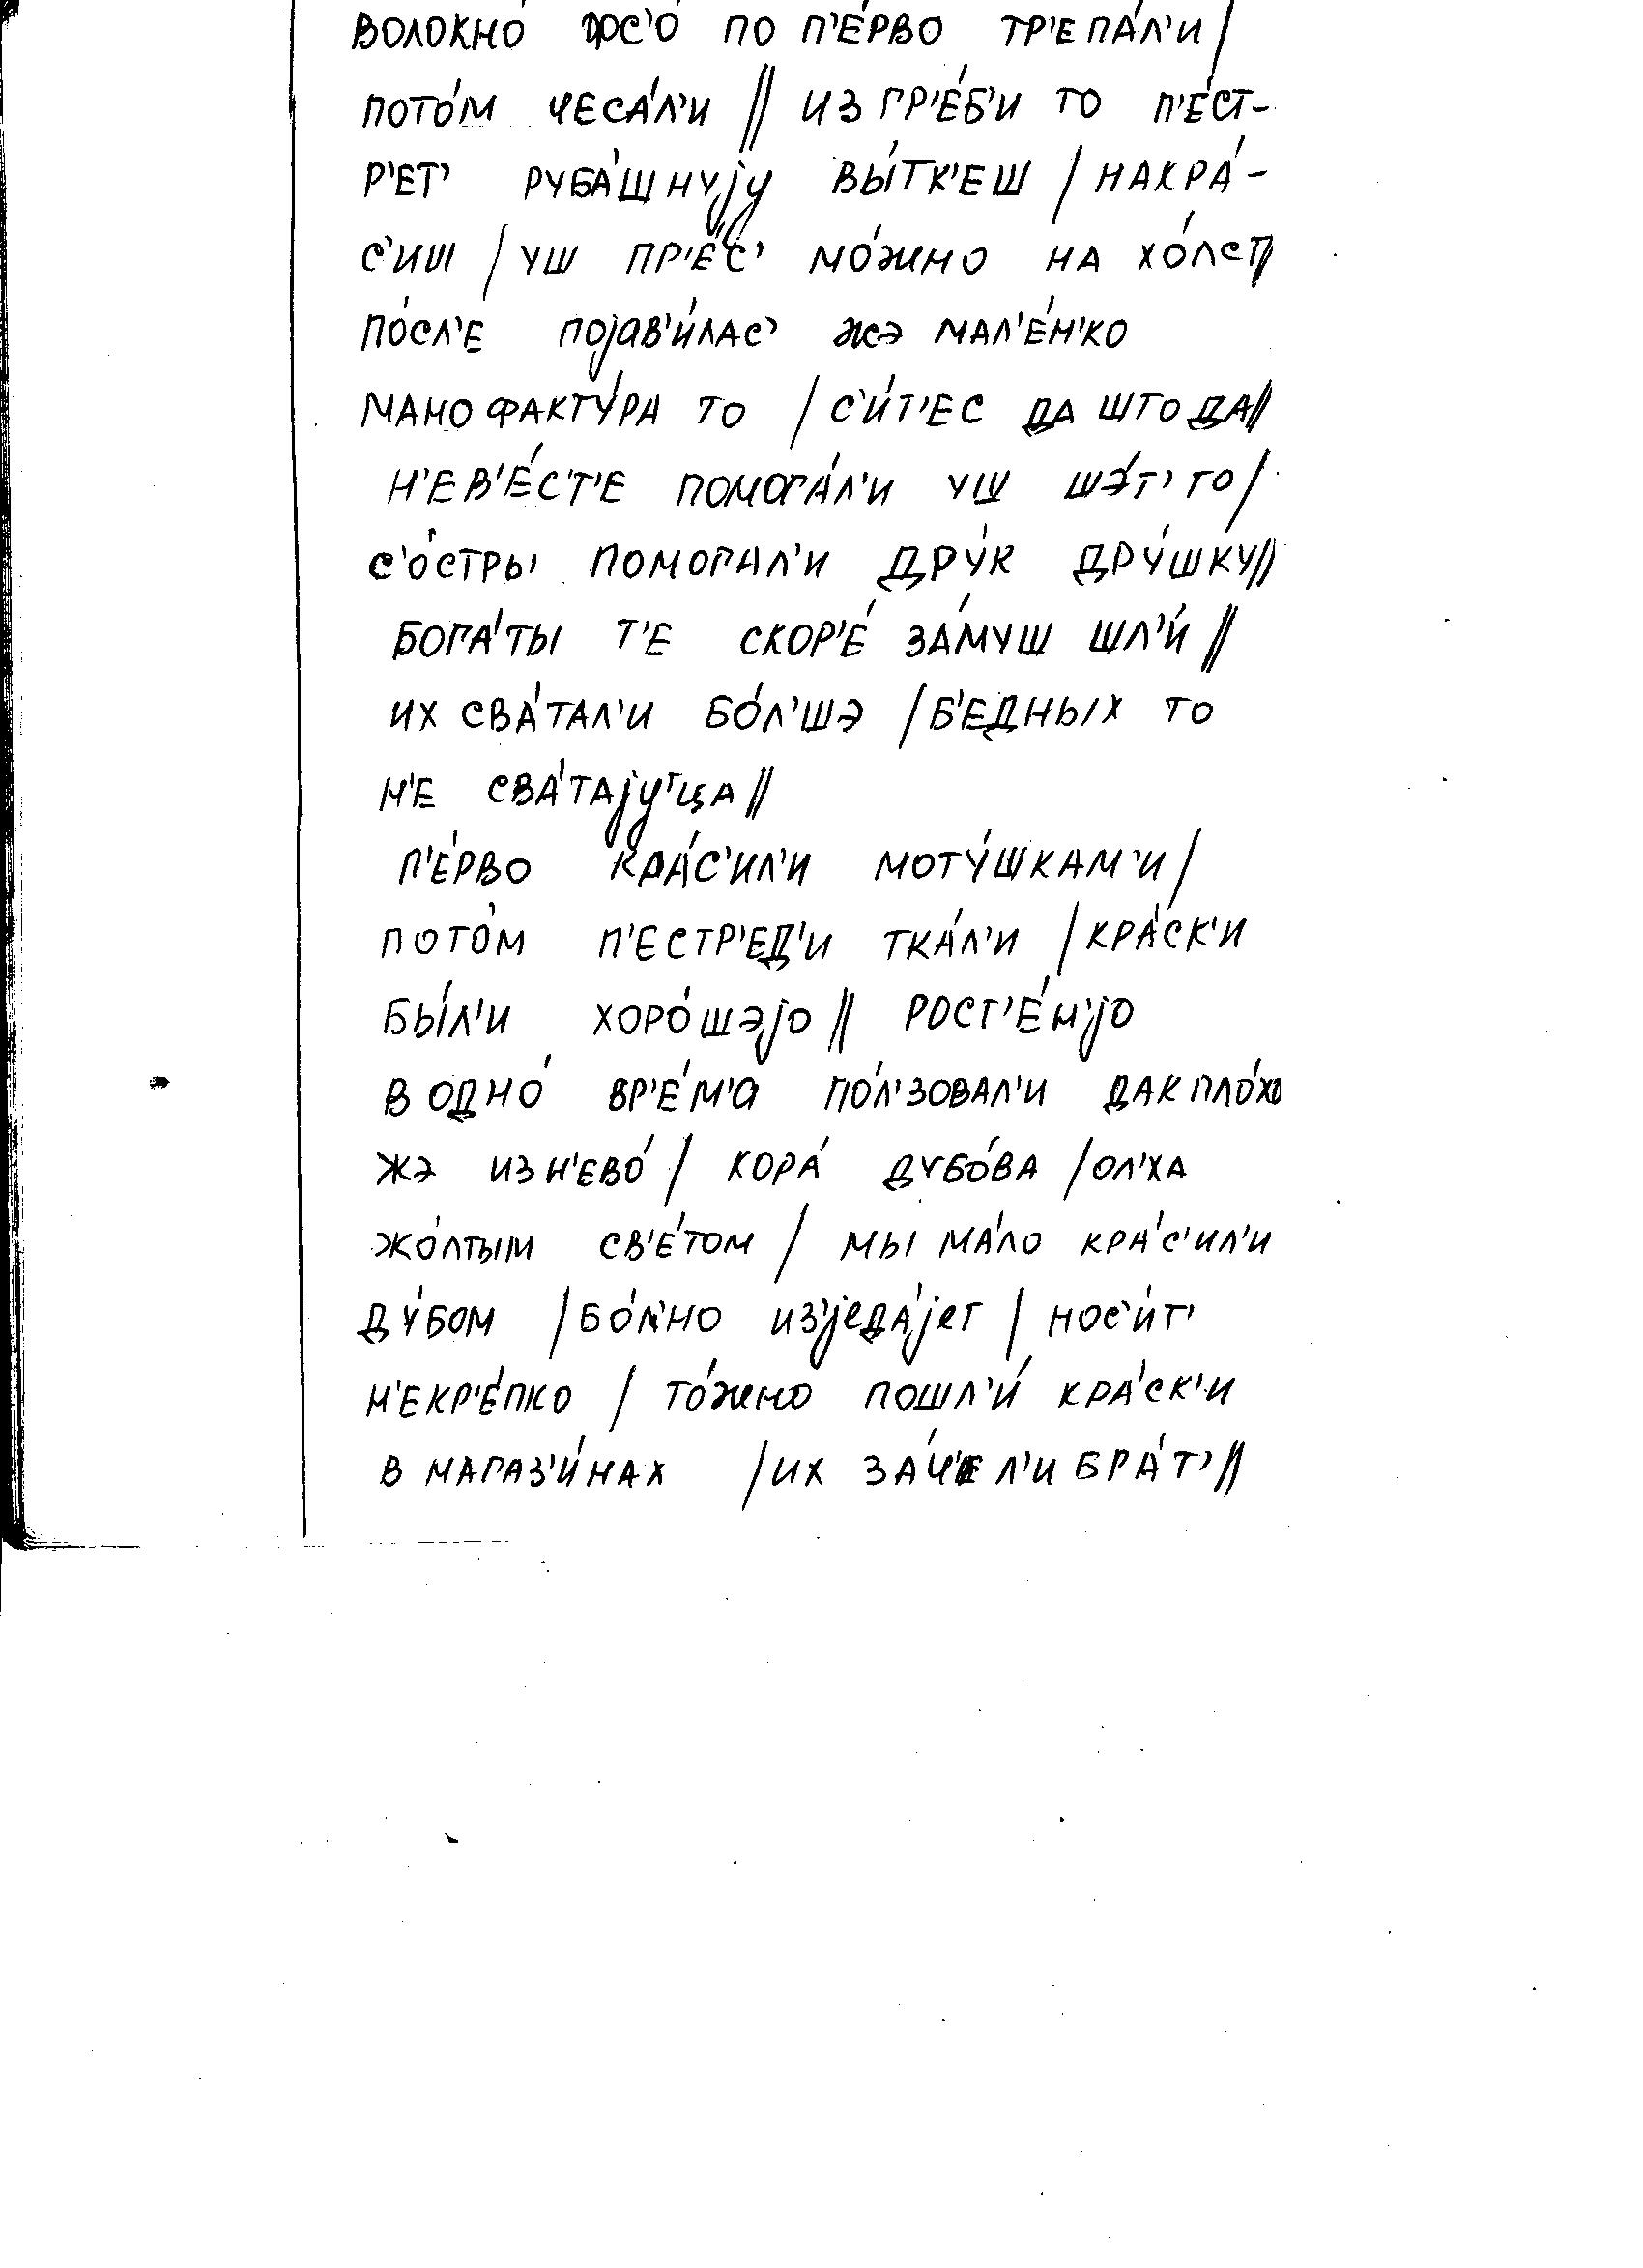 ВОЛОКНО́ ФС'О́ ПО П'Е́РВО ТР'ЕПА́Л'И /
ПОТО́М ЧЕСА́Л'И // ИЗ ГР'Е́Б'И ТО П'Е́СТ-
Р'ЕТ' РУБА́ШНУjУ ВЫ́ТК'ЕШ / НАКРА́-
С'ИШ / УШ ПР'Е́С' МО́ЖНО НА ХО́ЛСТ//
ПО́СЛ'Е ПОjАВ'И́ЛАС' ЖЭ МАЛ'Е́Н'КО
МАНОФАКТУ́РА ТО / С'И́Т'ЕС ДА ШТО ДА//
Н'ЕВ'Е́С'Т'Е ПОМОГА́Л'И УШ ШЭ́Т' ТО /
С'О́СТРЫ ПОМОГАЛ'И ДРУ́К ДРУ́ШКУ//
БОГА́ТЫ Т'Е СКОР'Е́ ЗА́МУШ ШЛ'И́ //
ИХ СВА́ТАЛ'И БО́Л'ШЭ / Б'ЕДНЫХ ТО
Н'Е СВА́ТАjУТЦА //
П'Е́РВО КРА́С'ИЛ'И МОТУ́ШКАМ'И /
ПОТО́М П'ЕСТР'ЕД'И ТКА́Л'И / КРА́СК'И
БЫ́Л'И ХОРО́ШЭjО // РОСТ'Е́Н'jО
В ОДНО́ ВР'Е́М'А ПО́Л'ЗОВАЛ'И ДАК ПЛО́ХО
ЖЭ ИЗ Н'ЕВО́ / КОРА́ ДУБО́ВА / ОЛ'ХА
ЖО́ЛТЫМ СВ'Е́ТОМ / МЫ МА́ЛО КРА́С'ИЛ'И
ДУ́БОМ / БО́Л'НО ИЗ'jЕДА́jЕТ / НОС'И́Т'
Н'ЕКР'Е́ПКО / ТО́ЖНО ПОШЛ'И́ КРА́СК'И
В МАГАЗ'И́НАХ / ИХ ЗА́Ч'ЕЛ'И БРА́Т' //